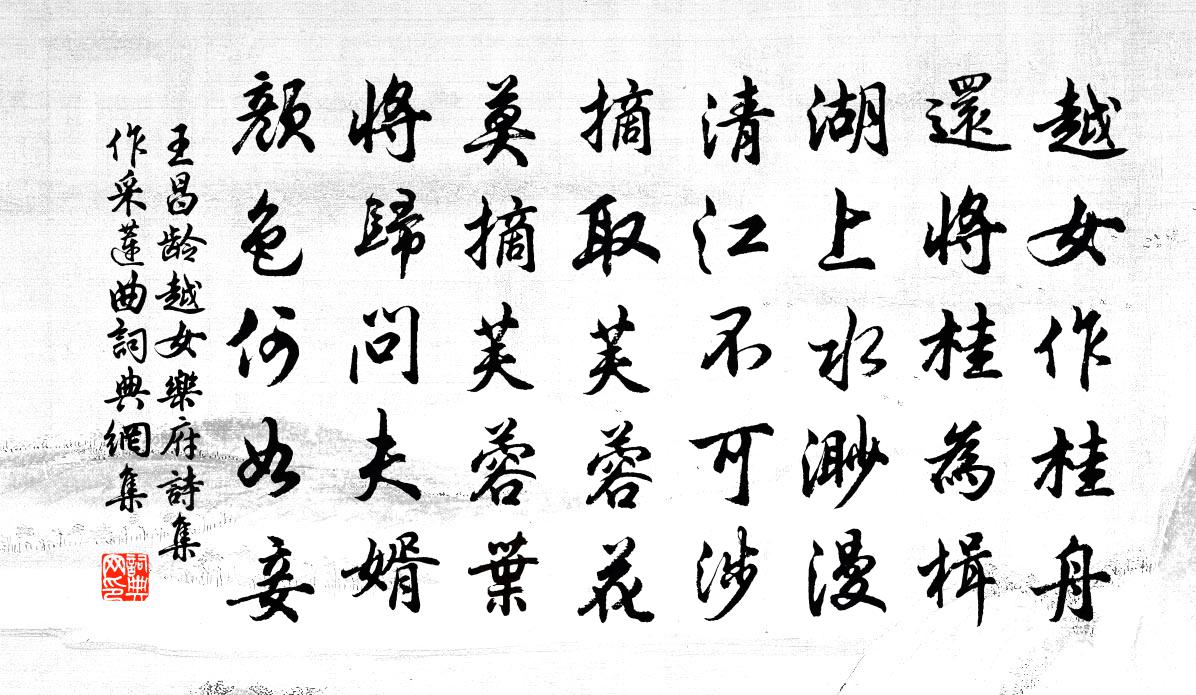 越女作桂舟
還將桂為楫
湖上水渺漫
清江不可涉
摘取芙蓉花
莫摘芙蓉葉
將歸問夫婿
顏色何如妾
王昌齡越女樂府詩集
作采蓮曲詞典網集
詞典
网印